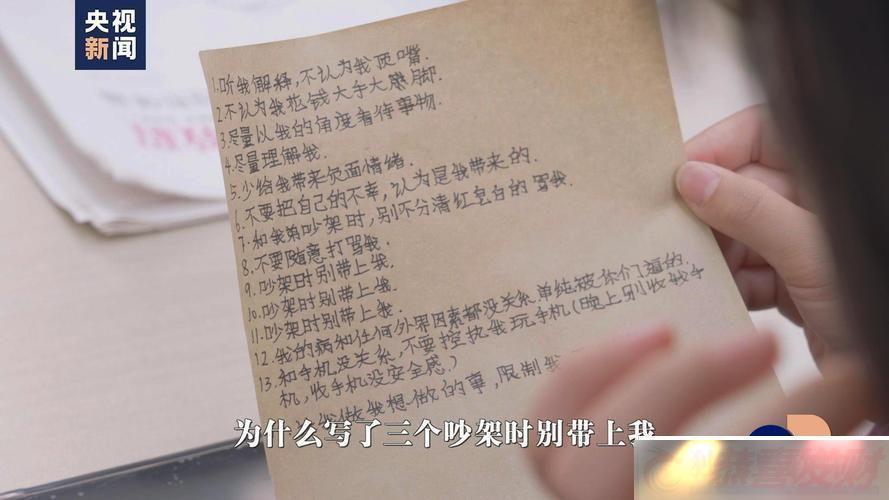 央视
新闻
1.听我解释,不认为我顶嘴.
2.不认为我花钱大手大脚.
3.尽量以我的角度看待事物.
4.尽量理解我.
5.少给我带来负面情绪.
6.不要把自己的不幸,认为是我带来的.
7.和我弟吵架时,别不分青红皂白的骂我.
8.不要随意打骂我.
9.吵架时别带上我.
10.吵架时别带上我.
11.吵架时别带上我.
12.我的病和任何外界因素都没关系单纯被你们逼的.
13.和手机没关系,不要控执我玩手机(晚上别收我手
机,收手机没安全感.)
我做我想做的事,限制我
为什么写了三个吵架时别带上我